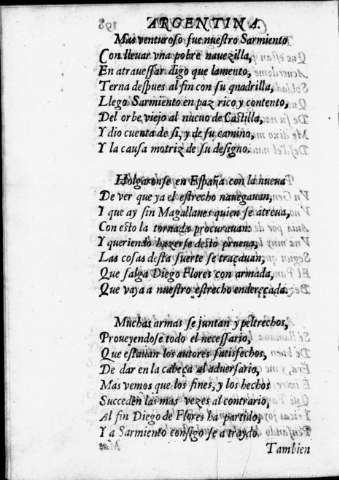 ARGENTINA.
Mas venturoso fue nuestro Sarmiento
Con lleuar vna pobre nauezilla,
En atrauessar digo que lamento,
Terna despues al fin con su quadrilla,
Llego Sarmiento en paz rico y contento,
Del orbe viejo al nueuo de Castilla,
Y dio cuenta de si, y de su camino,
Y la causa motriz de su designo.
Holgaronse en España con la nueua
De ver que ya el estrecho nauegauan,
Y que ay sin Magallanes quien se atreua,
Con esto la tornada procurauan:
Y queriendo hazerse desto prueua,
Las cosas desta suerte se traçauan,
Que salga Diego Flores con armada,
Que vaya a nuestro estrecho endereçada.
Muchas armas se juntan y peltrechos,
Proueyendose todo el necessario,
Que estauan los autores satisfechos,
De dar en la cabeça al aduersario,
Mas vemos que los fines, y los hechos
Succeden las mas vezes al contrario,
Al fin Diego de Flores ha partido,
Y a Sarmiento consigo se a traydo.
Tambien